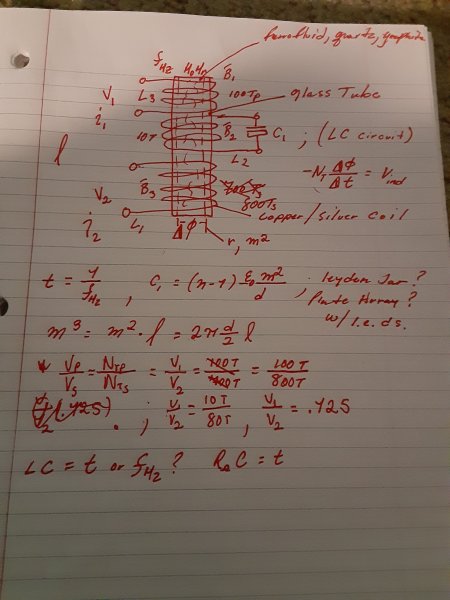 ferrofluid, quartz, graphite
f Hz
B₁
100Tp
V₁
L3
glass Tube
i₁
10T
B₂
C₁ ; (LC circuit)
l
L₂
-N_T Δφ/Δt = V ind
V₂
B₃
800Ts
copper/silver coil
i₂
L₁
Δφ
r, m²
t = 1/f Hz , C₁ = (n-1) ε₀ m²/d ; leyden Jar?
Plate Array?
w/ l.e.d.s.
m³ = m² · l = 2π d/2 l
Vp/Vs = NTp/NTs = V₁/V₂ = 100T/800T
(.125) . ; V₁/V₂ = 10T/80T , V₁/V₂ = .125
LC = t or f Hz ? RₑC = t